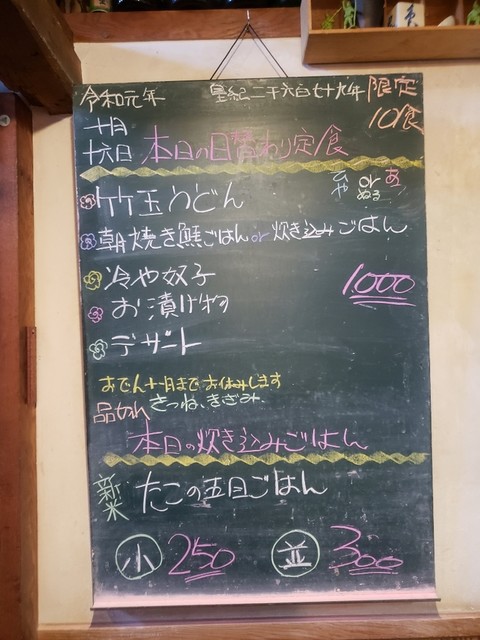 令和元年 皇紀二千六百七十九年 限定
10食
十月
十六日 本日の日替わり定食
竹玉うどん ひや or ぬる あ
朝焼き鮭ごはん or 炊き込みごはん
冷や奴子
お漬け物
1,000
デザート
おでん十月までお休みします
品切れ きつね、きざみ
本日の炊き込みごはん
新米 たこの五目ごはん
小 250 並 300